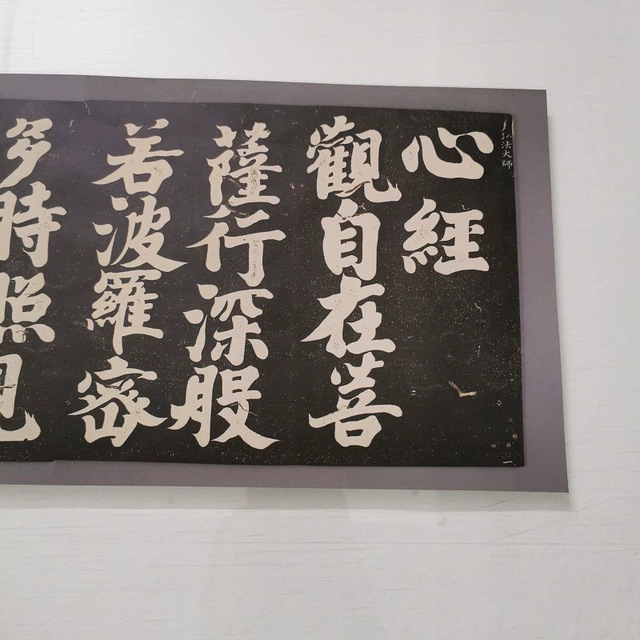 弘法大師
心經
觀自在菩
薩行深般
若波羅密
多時照見